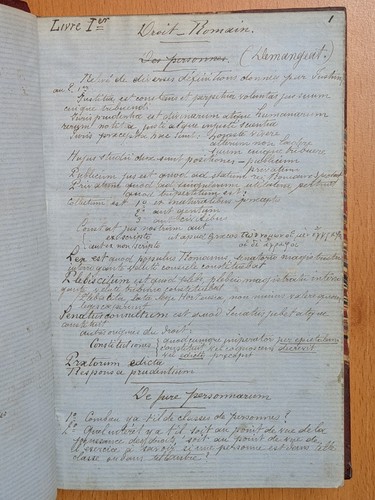 Livre Ier
1
Droit-Romain.
Des personnes. (Demangeat).
Justitia est constans et perpetua voluntas jus suum
cuique tribuendi.
Juris prudentia est divinarum atque humanarum
rerum notitia justi atque injusti scientia
Juris praecepta haec sunt: honeste vivere
alterum non laedere
suum cuique tribuere
Hujus studii duae sunt positiones - publicum
privatum
Publicum jus est quod ad statum rei Romanae spectat
Privatum quod ad singulorum utilitatem pertinet
Collectum est 1º ex naturalibus praeceptis
2º aut gentium
3º aut civilibus
Constat jus nostrum aut
ex scripto
aut non scripto
Lex est quod populus Romanus senatorio magistratu
interrogante veluti consule constituebat
Plebiscitum est quod plebs plebeio magistratu interrogante
veluti tribuno constituebat
Senatusconsultum est quod Senatus jubet atque
constituit
autres origines du droit:
Constitutiones: quodcumque imperator per epistulam
constituit vel cognoscens decrevit
vel edicto praecepit
Praetorum edicta
Responsa prudentium
De jure personarum
1º Combien y a-t-il de classes de personnes?
2º Quel intérêt y a-t-il soit au point de vue de la
jouissance des droits, soit au point de vue de
l'exercice à savoir si une personne est dans telle
classe ou dans telle autre?